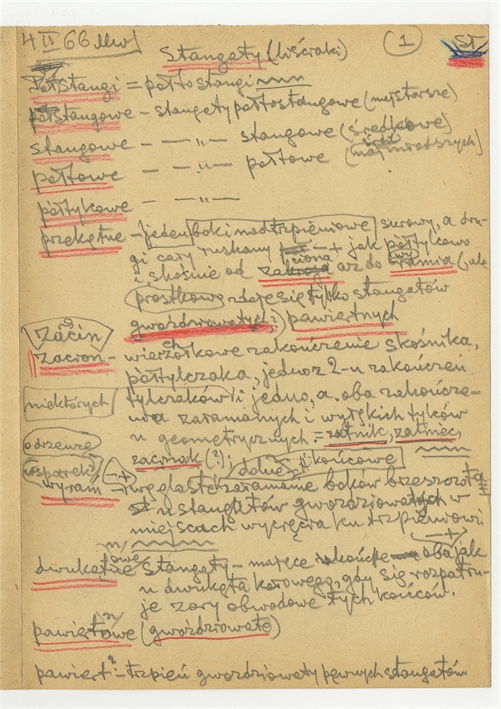 4 II 66 Mw
Stangaty (liściaki) (1) ST
Półstangi = półtostangi
półtostangowe - stangaty półtostangowe (najstarsze)
stangowe - — „ — stangowe (środkowe)
półtowe - — „ — półtowe (najmłodszych)
półtykowe - — „ —
przekątne - jeden bok nadtrzpieniowe surowy, a dru-
gi cały ruszany — jak półtykowo
i skośnie od zaciosa aż do ramia (, ale
prostkowe zdaje się tylko stangatów
gwoździowatych?) pawiętnych
zacin
zacron - wierzchołkowe zakończenie skośnika,
półtylczaka, jedno z 2-u zakończeń
niektórych tylczaków i jedno, a, oba zakończe-
nia załamanych i wszystkich tylców
odrzewze u geometrycznych = zatnik, zatniec,
zaciniak (?) dolne końcowe
wsparcki
wyram - węglaste załamanie boków brzeszczota
u stangatów gwoździowatych w
miejscach wycięcia ku trzpieniowi
dwukątowe stangaty - mające końce oba jak
u dwukąta korowego, gdy się rozpatru-
je zary obwodowe tych końców.
pawiętowe (gwoździowate)
pawięt? - trzpień gwoździowaty pewnych stangatów